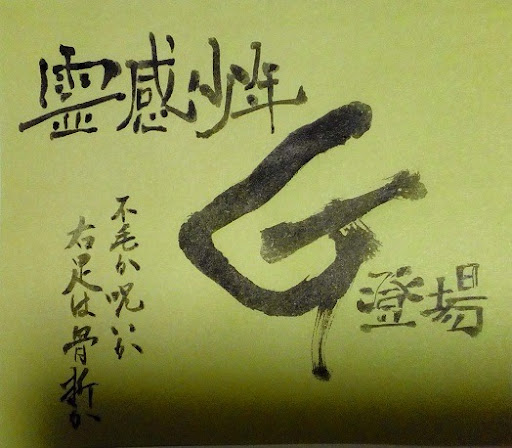 霊感少年
G
登場
不毛か呪いか
右足は骨折か